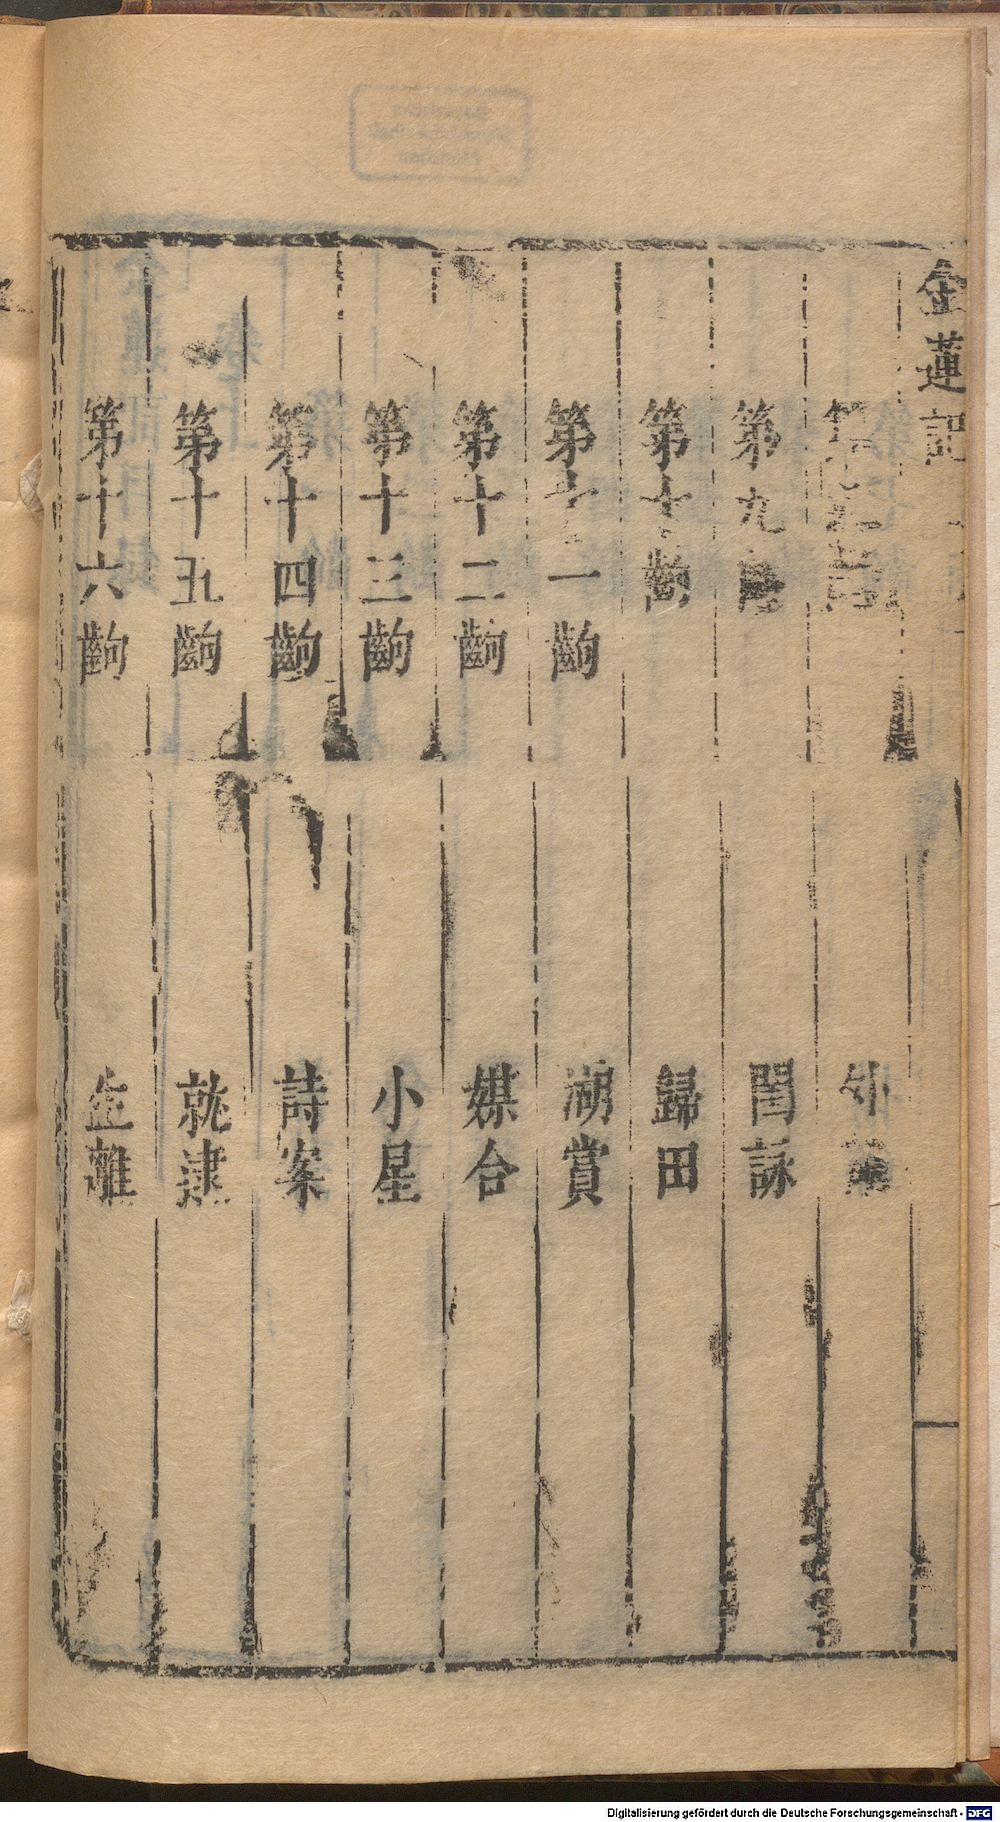 金蓮記
第八齣 外
第九齣 閨詠
第十齣 歸田
第十一齣 湖賞
第十二齣 媒合
第十三齣 小星
第十四齣 詩案
第十五齣 就逮
第十六齣 生離
Digitalisierung gefördert durch die Deutsche Forschungsgemeinschaft - DFG